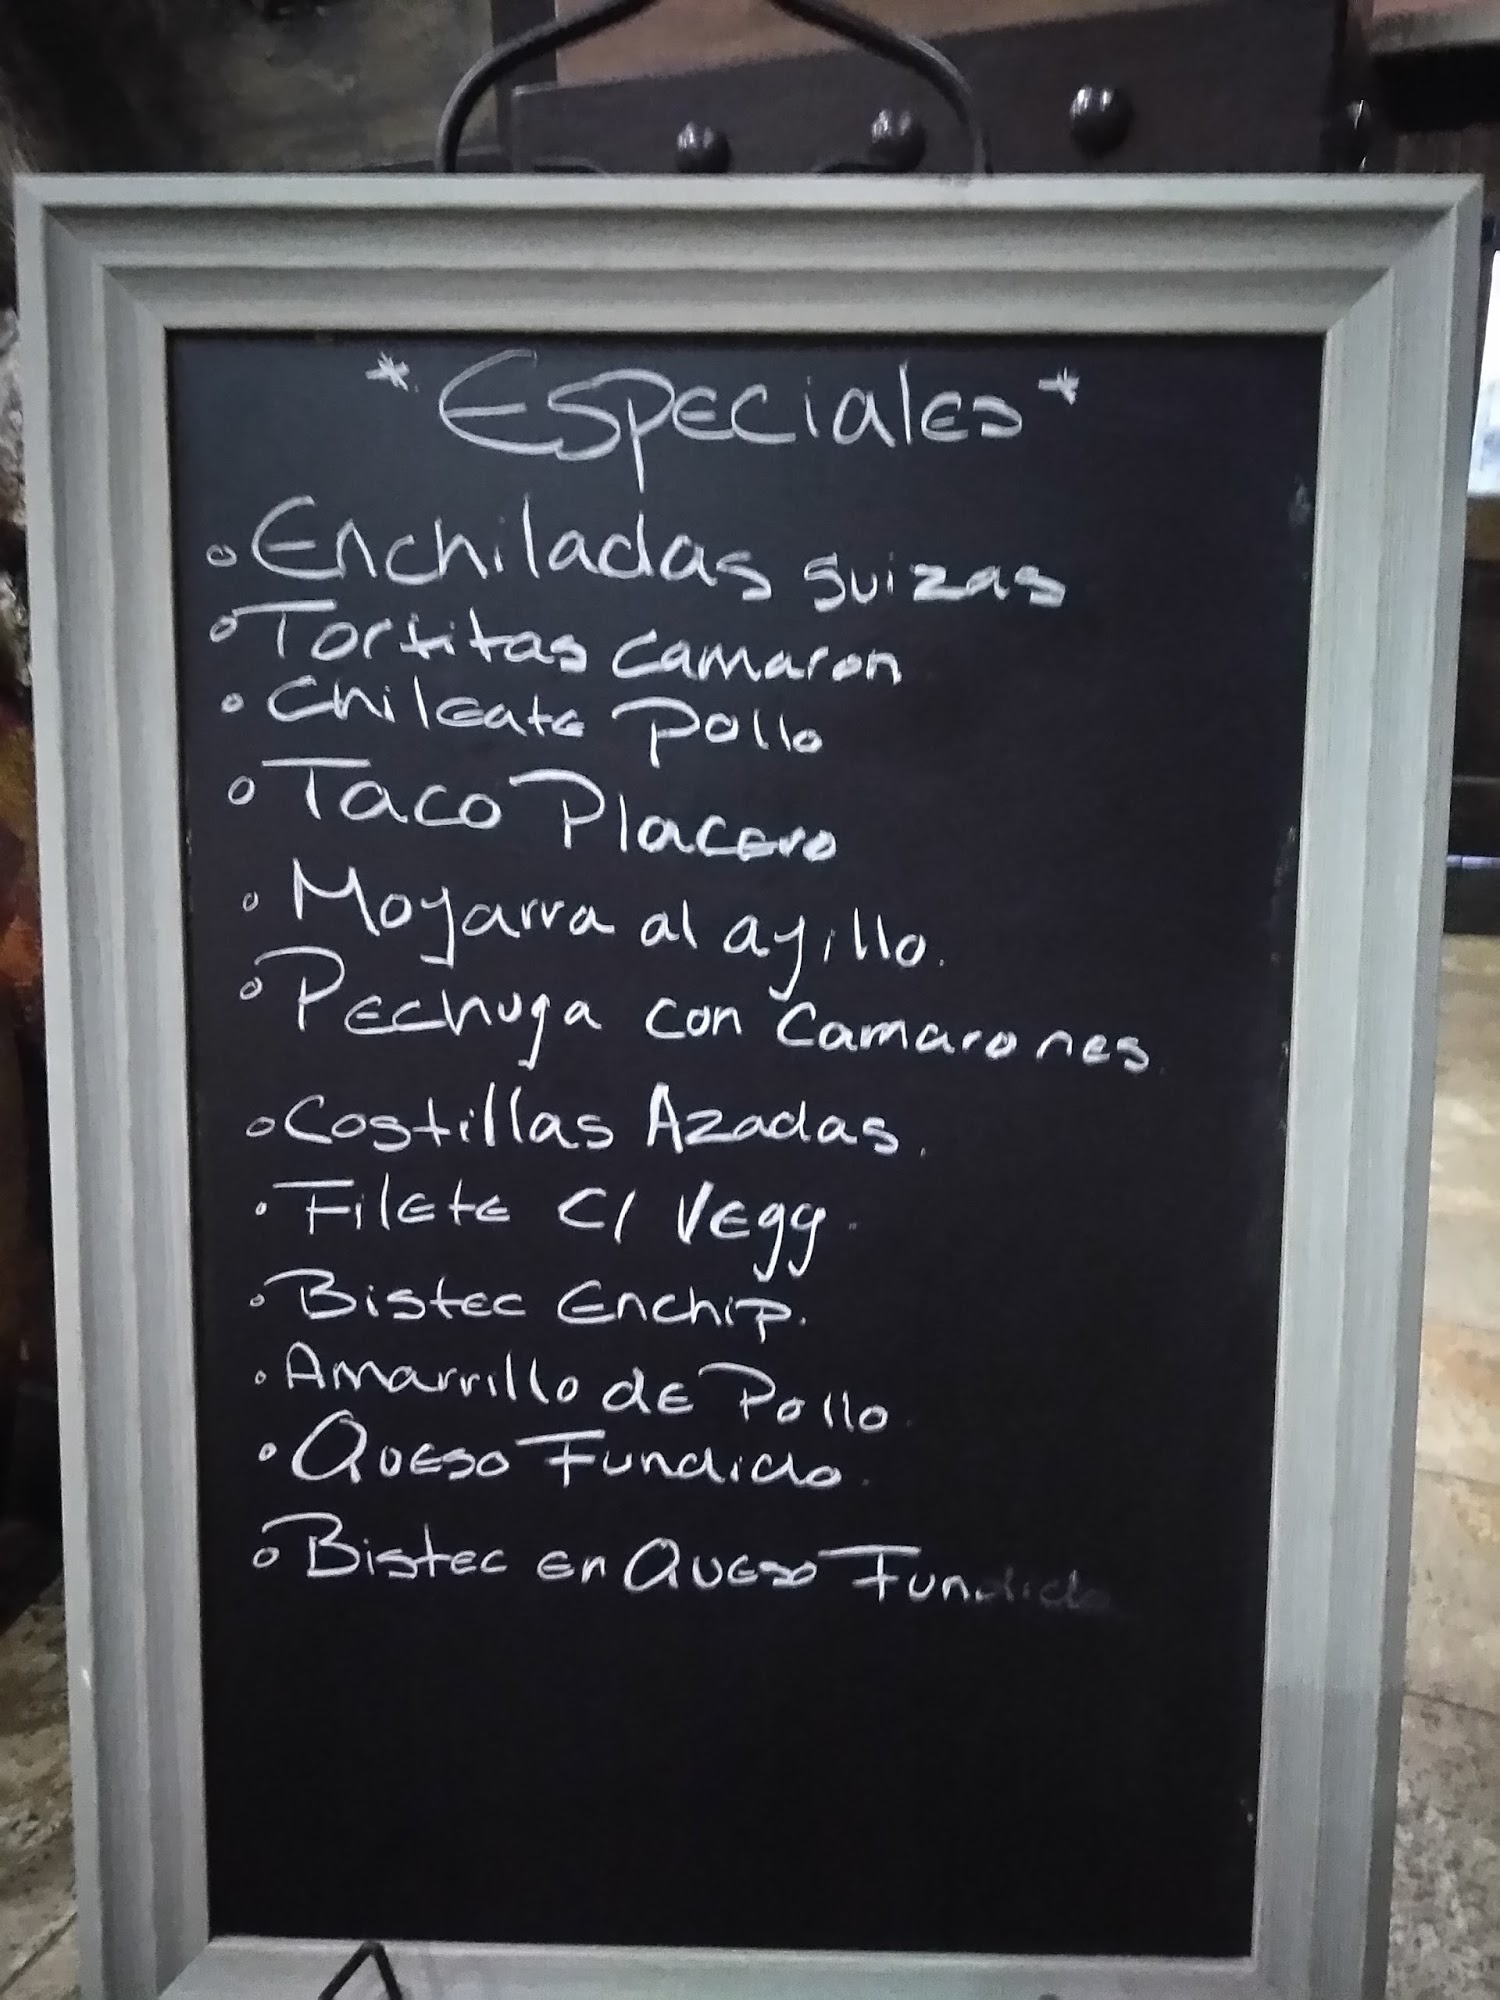 *Especiales*
Enchiladas suizas
Tortitas camaron
Chileate Pollo
Taco Placero
Moyarra al ayillo.
Pechuga con camarones.
Costillas Azadas.
Filete C/ Vegg.
Bistec Enchip.
Amarrillo de Pollo
Queso Fundido.
Bistec en Queso Fundido